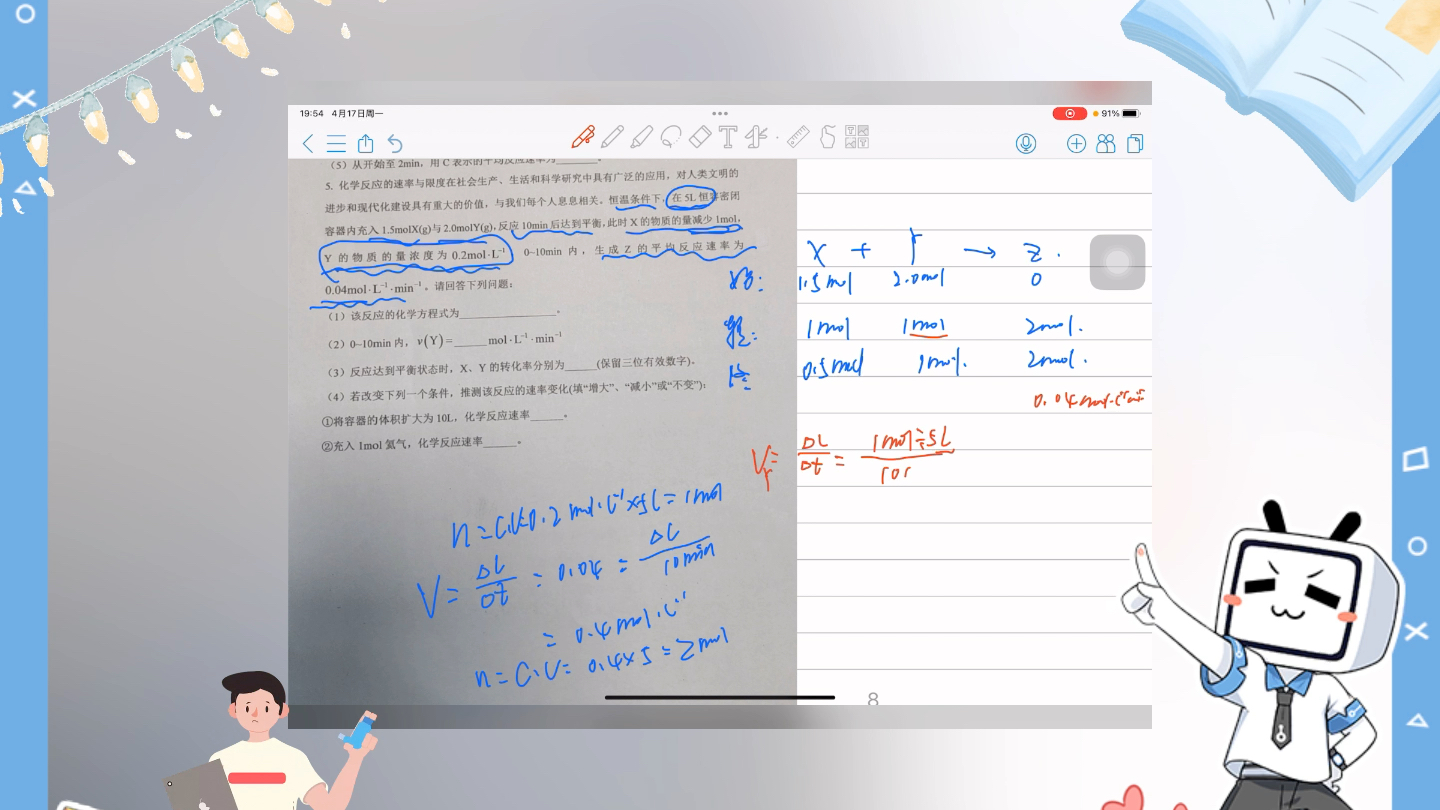 19:54 4月17日周一
91%
(5)从开始至 2min,用 C 表示的平均反应速率为________。
5. 化学反应的速率与限度在社会生产、生活和科学研究中具有广泛的应用,对人类文明的
进步和现代化建设具有重大的价值,与我们每个人息息相关。恒温条件下,在 5L 恒容密闭
容器内充入 1.5molX(g)与 2.0molY(g),反应 10min 后达到平衡,此时 X 的物质的量减少 1mol,
Y 的物质的量浓度为 0.2mol·L⁻¹ 0~10min 内,生成 Z 的平均反应速率为
0.04mol·L⁻¹·min⁻¹。请回答下列问题:
(1)该反应的化学方程式为________________。
(2)0~10min 内,v(Y)=______mol·L⁻¹·min⁻¹
(3)反应达到平衡状态时,X、Y 的转化率分别为______(保留三位有效数字)。
(4)若改变下列一个条件,推测该反应的速率变化(填“增大”、“减小”或“不变”):
①将容器的体积扩大为 10L,化学反应速率______。
②充入 1mol 氦气,化学反应速率______。
X + Y → Z
1.5mol 2.0mol 0
1mol 1mol 2mol.
0.5mol 1mol. 2mol.
ΔC/Δt = 1mol÷5L
n=C·V=0.2mol·L⁻¹×5L=1mol
V=ΔC/Δt=0.04=ΔC/10min
=0.4mol·L⁻¹
n=C·V=0.4×5=2mol
8